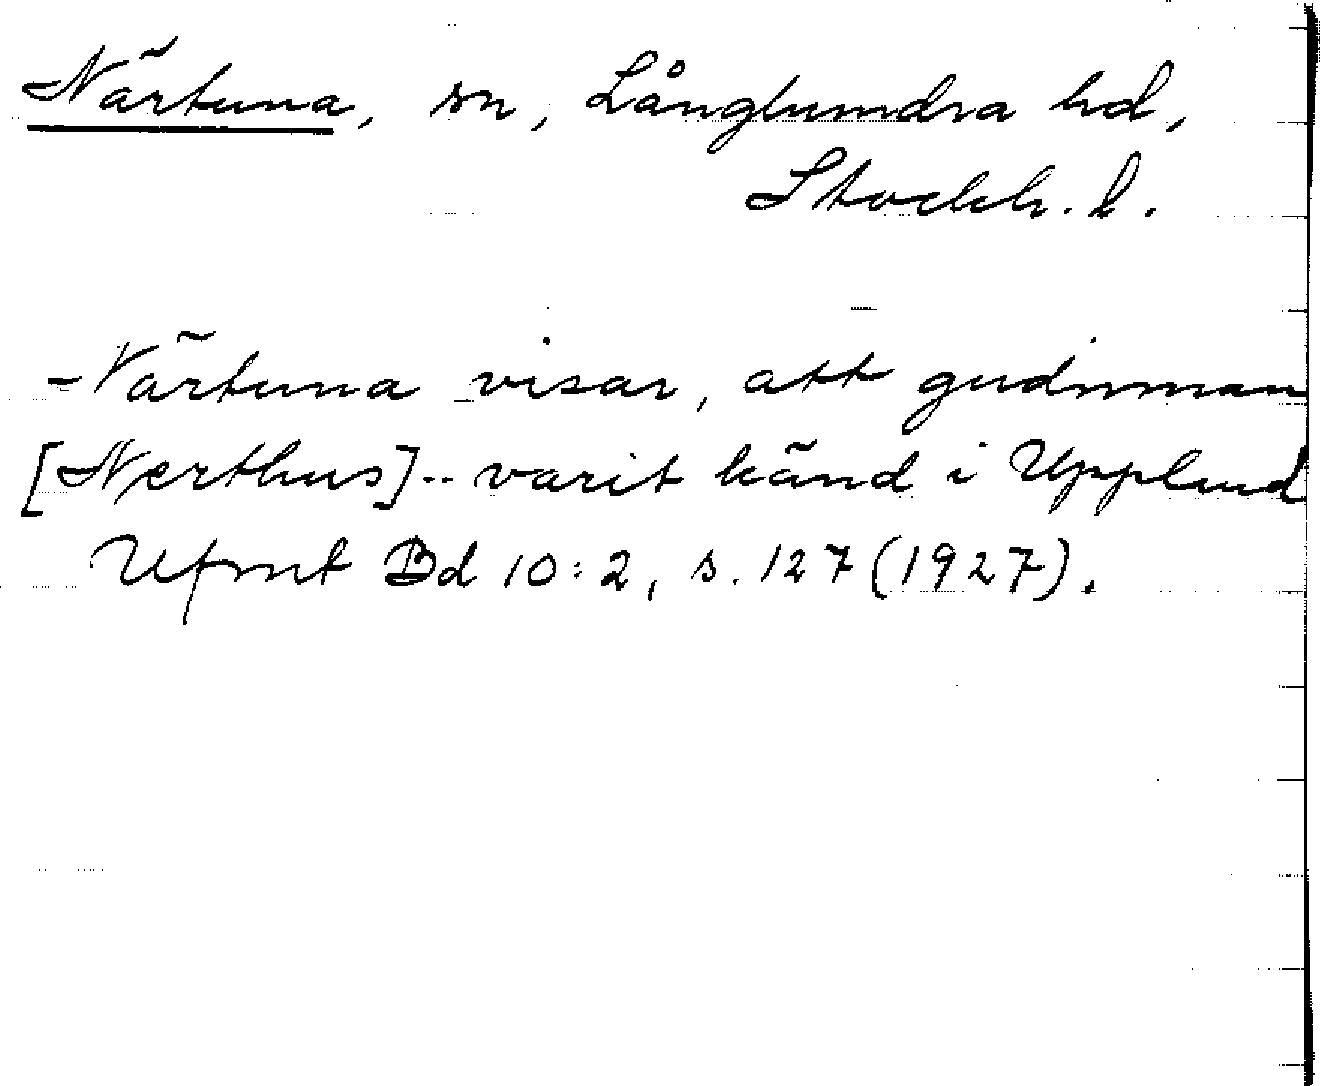 Närtuna, sn, Långhundra hd,
Stockh. l.
Närtuna visar, att gudinnan
[Nerthus] .. varit känd i Uppland
Ufmt Bd 10:2, s. 127 (1927).